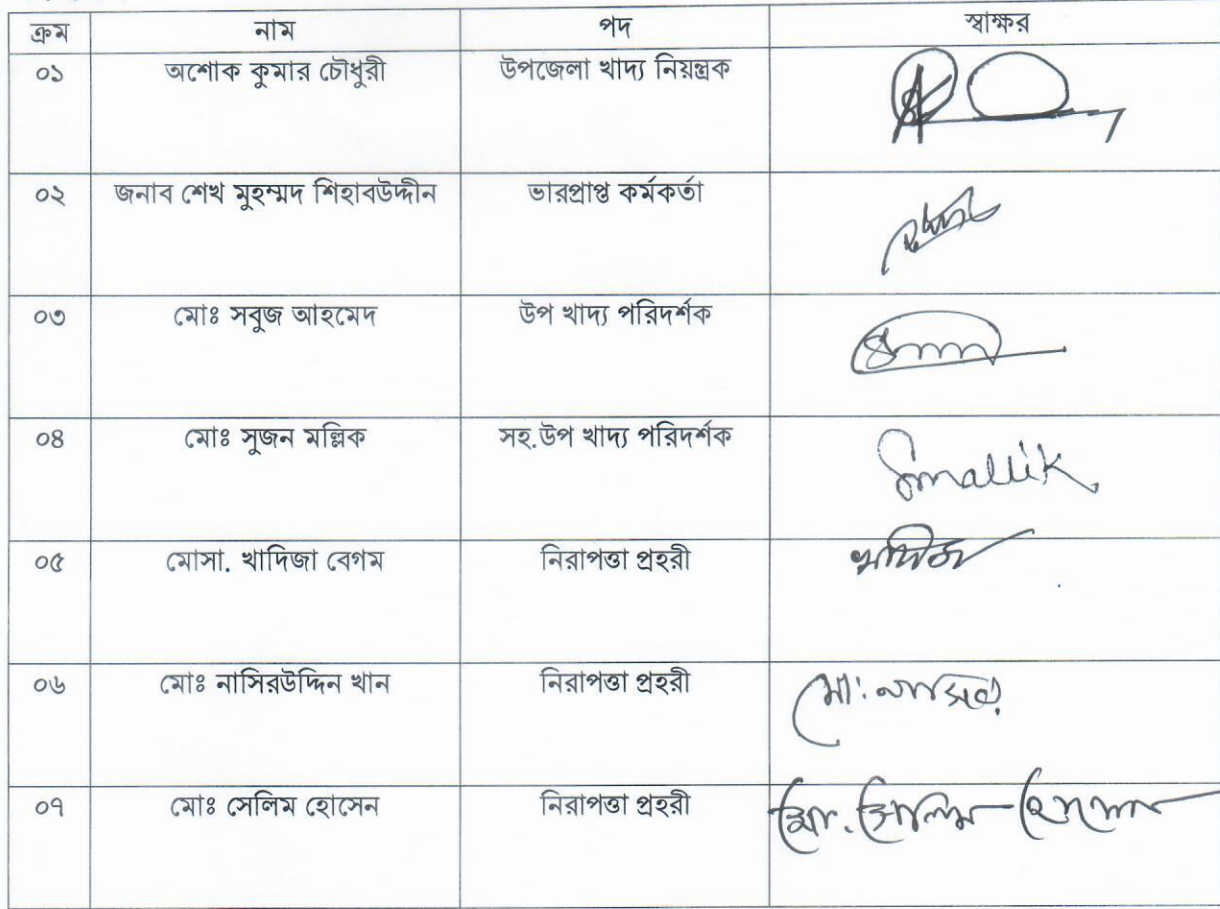 ক্রম নাম পদ স্বাক্ষর
০১ অশোক কুমার চৌধুরী উপজেলা খাদ্য নিয়ন্ত্রক
০২ জনাব শেখ মুহম্মদ শিহাবউদ্দীন ভারপ্রাপ্ত কর্মকর্তা
০৩ মোঃ সবুজ আহমেদ উপ খাদ্য পরিদর্শক
০৪ মোঃ সুজন মল্লিক সহ.উপ খাদ্য পরিদর্শক Smallik
০৫ মোসা. খাদিজা বেগম নিরাপত্তা প্রহরী খাদিজা
০৬ মোঃ নাসিরউদ্দিন খান নিরাপত্তা প্রহরী মো: নাসির
০৭ মোঃ সেলিম হোসেন নিরাপত্তা প্রহরী মো. সেলিম হোসেন